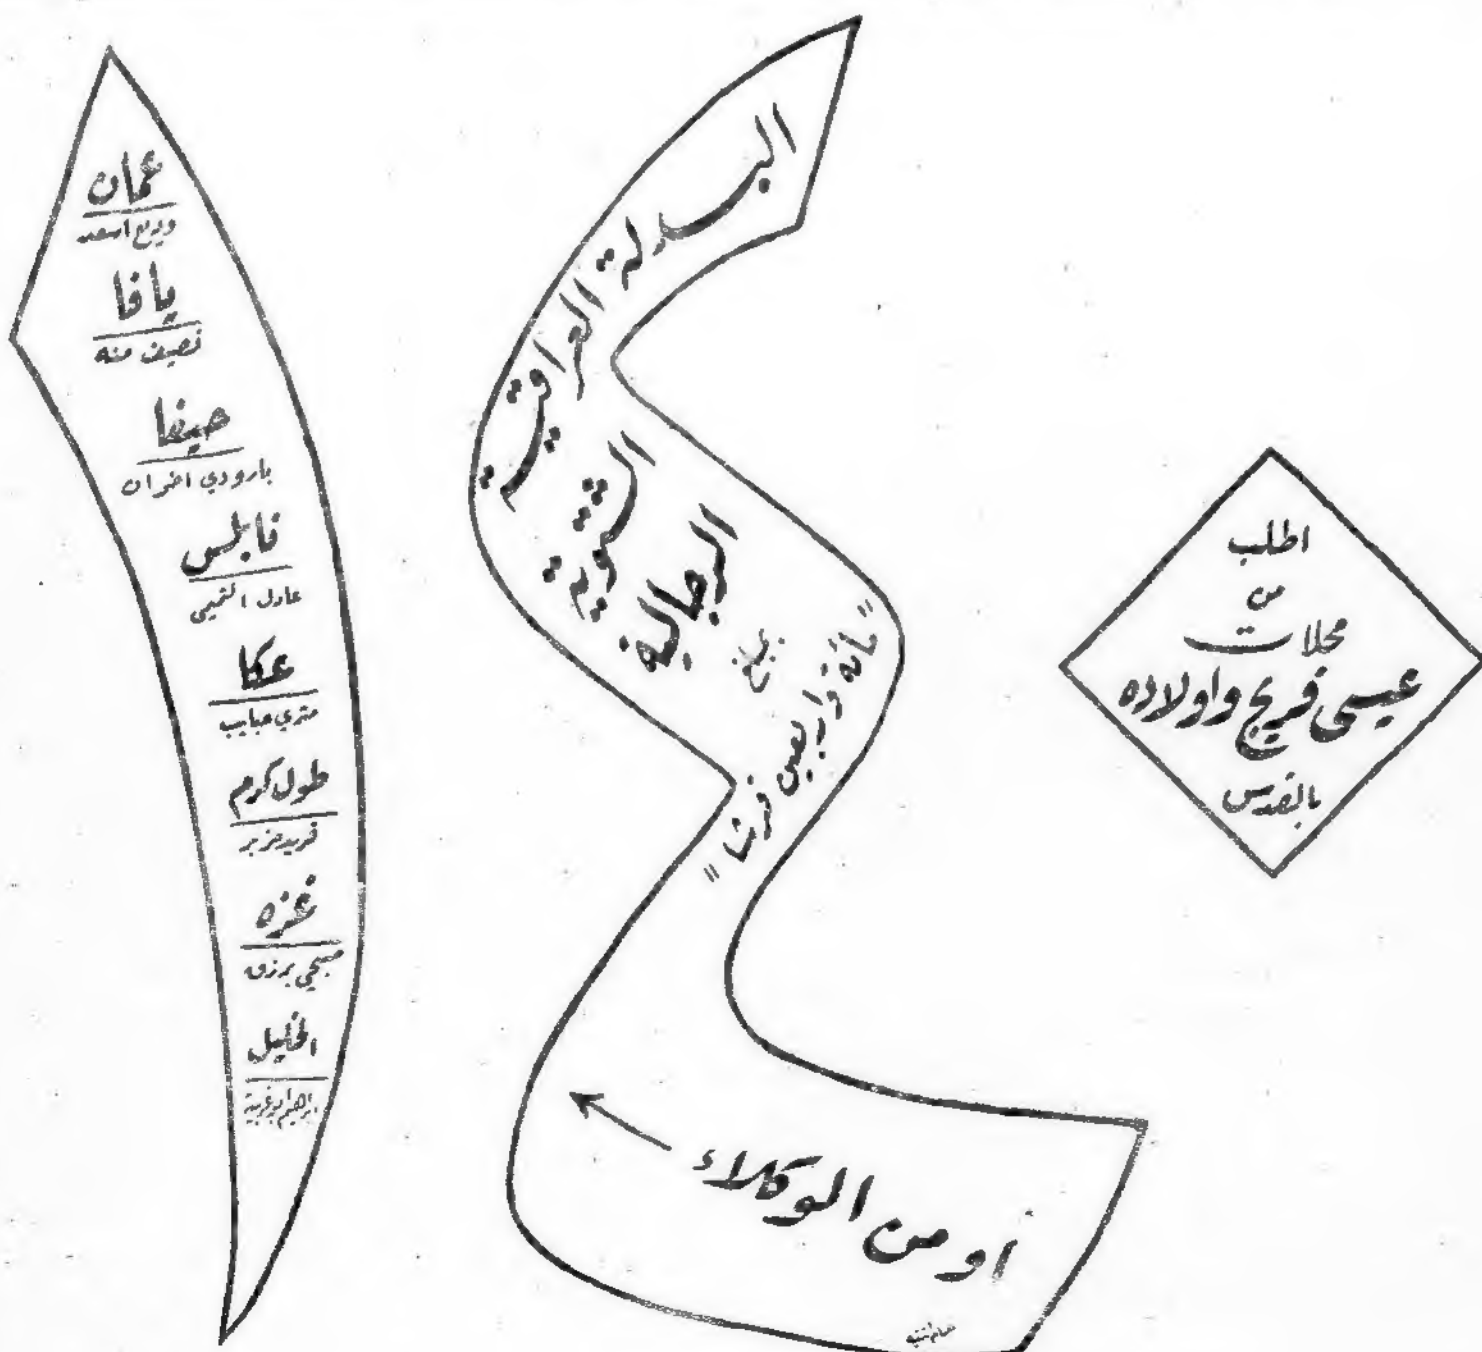 اطلب
من
محلات
عيسى فريج واولاده
بالقدس
البدلة العراقية
الشتوية
الرجالية
بمبلغ
"مائة واربعين قرشا"
او من الوكلاء
عمان
وديع اسعد
يافا
نصيف منه
حيفا
بارودي اخوان
نابلس
عادل
عكا
متري حبايب
طول كرم
فريد
غزه
صبحي برزق
الخليل